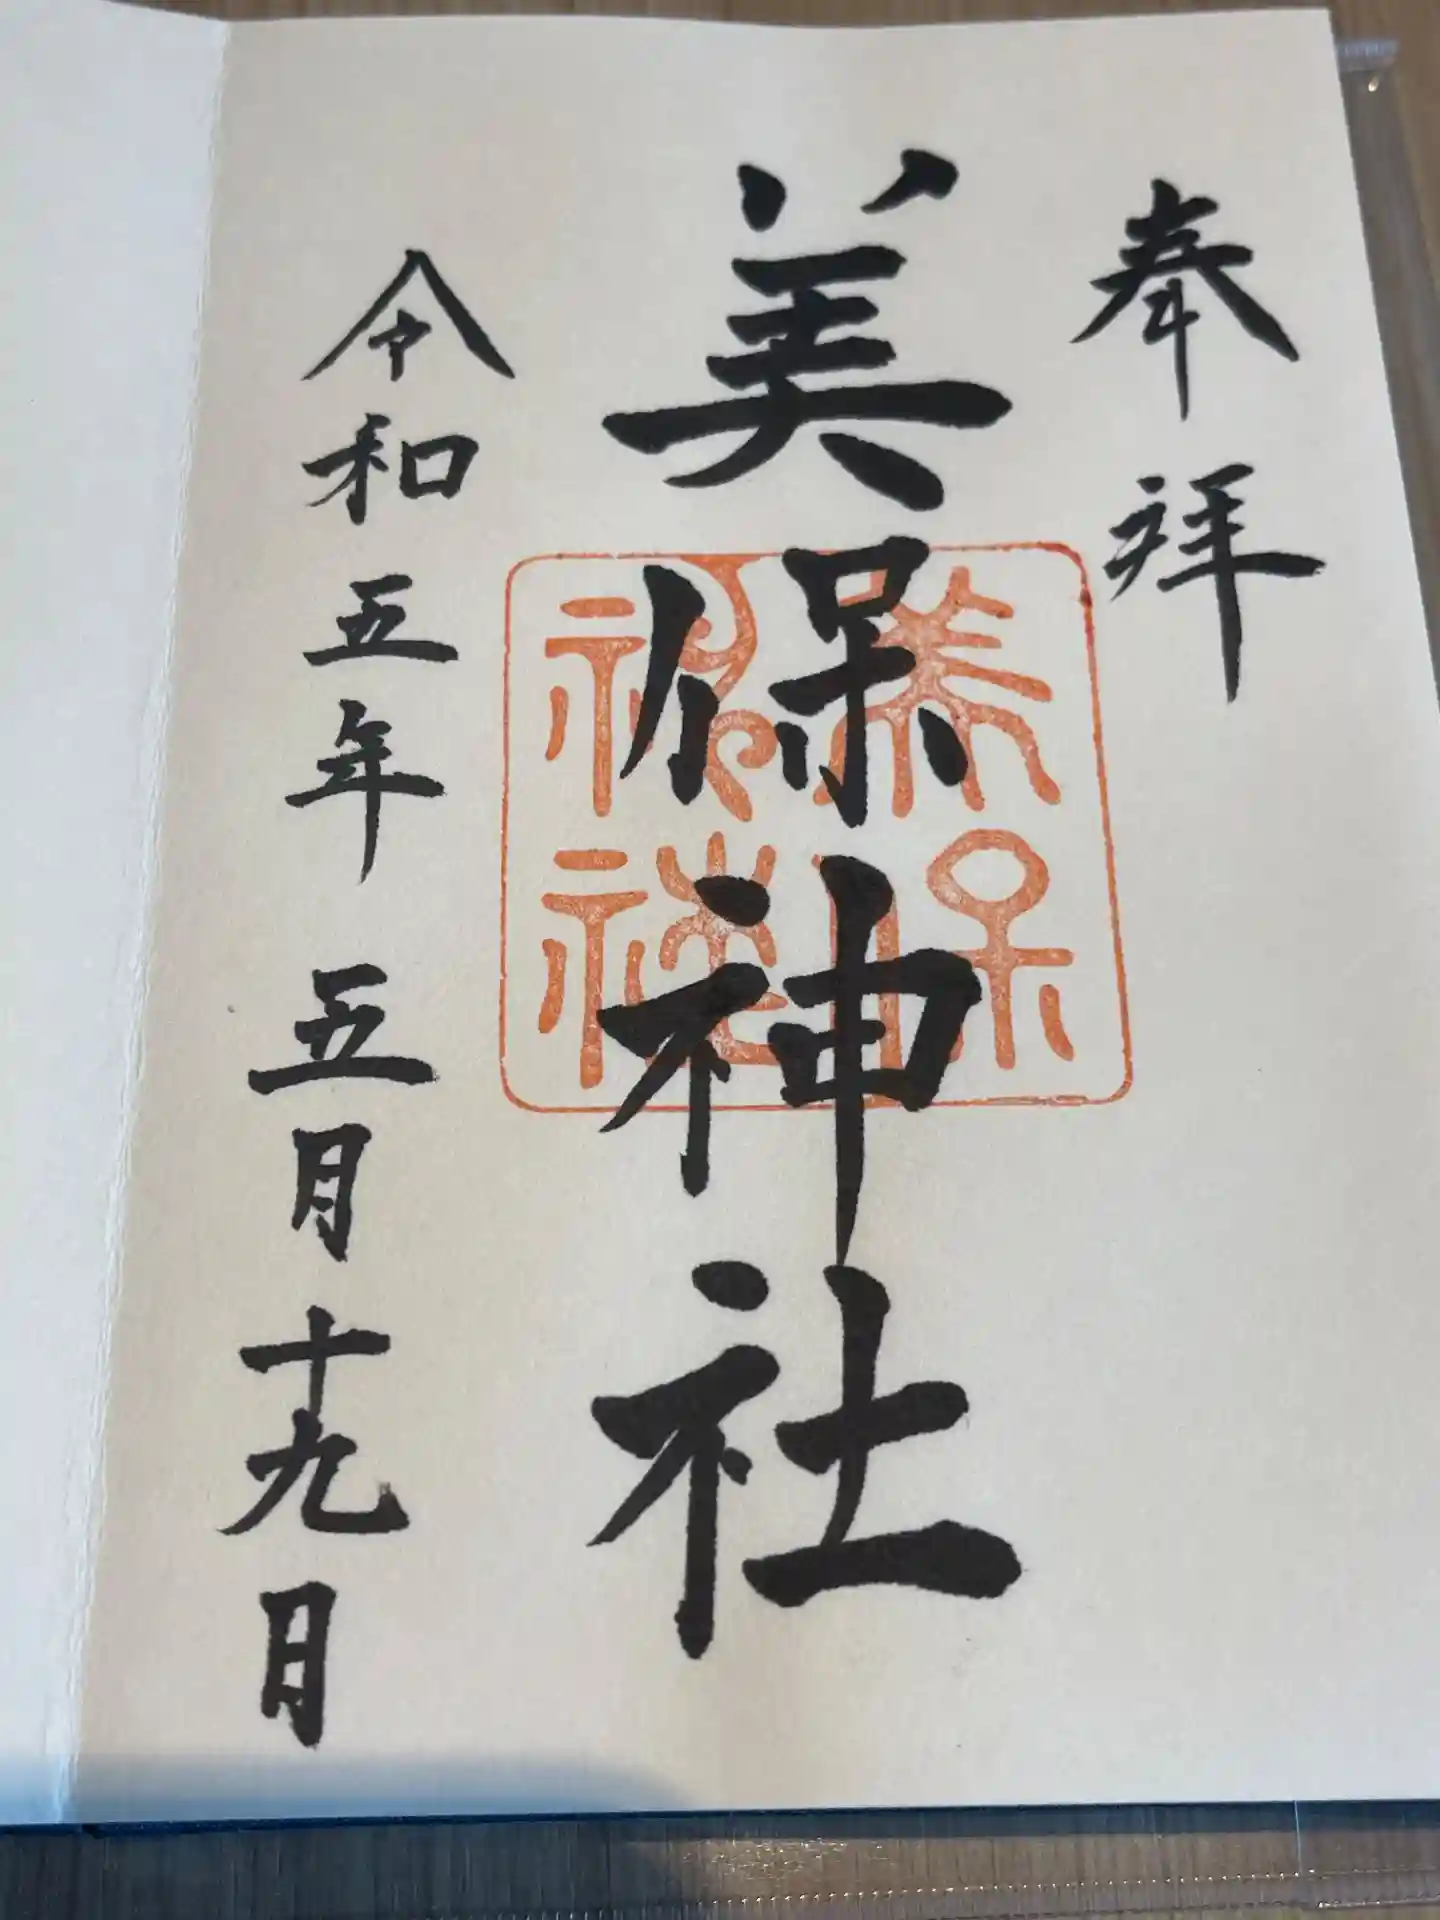 奉拝
美保神社
美保
祝祥
令和五年 五月十九日